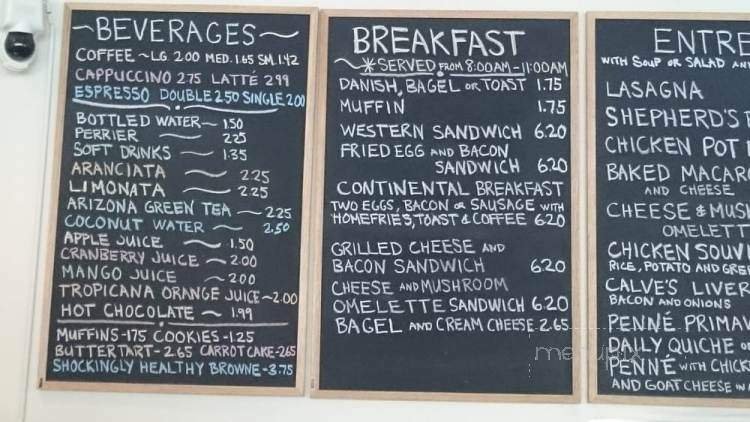 ~BEVERAGES~
COFFEE~LG. 2.00 MED. 1.65 SM. 1.42
CAPPUCCINO 2.75 LATTÉ 2.99
ESPRESSO DOUBLE 2.50 SINGLE 2.00
BOTTLED WATER~ 1.50
PERRIER ~ 2.25
SOFT DRINKS ~ 1.35
ARANCIATA ~ 2.25
LIMONATA ~ 2.25
ARIZONA GREEN TEA ~ 2.25
COCONUT WATER ~ 2.50
APPLE JUICE ~ 1.50
CRANBERRY JUICE ~ 2.00
MANGO JUICE ~ 2.00
TROPICANA ORANGE JUICE ~2.00
HOT CHOCOLATE ~ 1.99
MUFFINS-1.75 COOKIES-1.25
BUTTERTART-2.65 CARROT CAKE-2.65
SHOCKINGLY HEALTHY BROWNE-3.75
BREAKFAST
~*SERVED FROM 8:00AM-11:00AM
DANISH, BAGEL OR TOAST 1.75
MUFFIN 1.75
WESTERN SANDWICH 6.20
FRIED EGG AND BACON
SANDWICH 6.20
CONTINENTAL BREAKFAST
TWO EGGS, BACON OR SAUSAGE WITH
HOMEFRIES, TOAST & COFFEE 6.20
GRILLED CHEESE AND
BACON SANDWICH 6.20
CHEESE AND MUSHROOM
OMELETTE SANDWICH 6.20
BAGEL AND CREAM CHEESE 2.65
ENTRE
WITH SOUP OR SALAD AN
LASAGNA
SHEPHERD'S
CHICKEN POT
BAKED MACAR
AND CHEESE
CHEESE & MUS
OMELETT
CHICKEN SOUV
RICE, POTATO AND GRE
CALVE'S LIVER
BACON AND ONIONS
PENNÉ PRIMA
DAILY QUICHE O
PENNÉ WITH CHICK
AND GOAT CHEESE IN
menupix